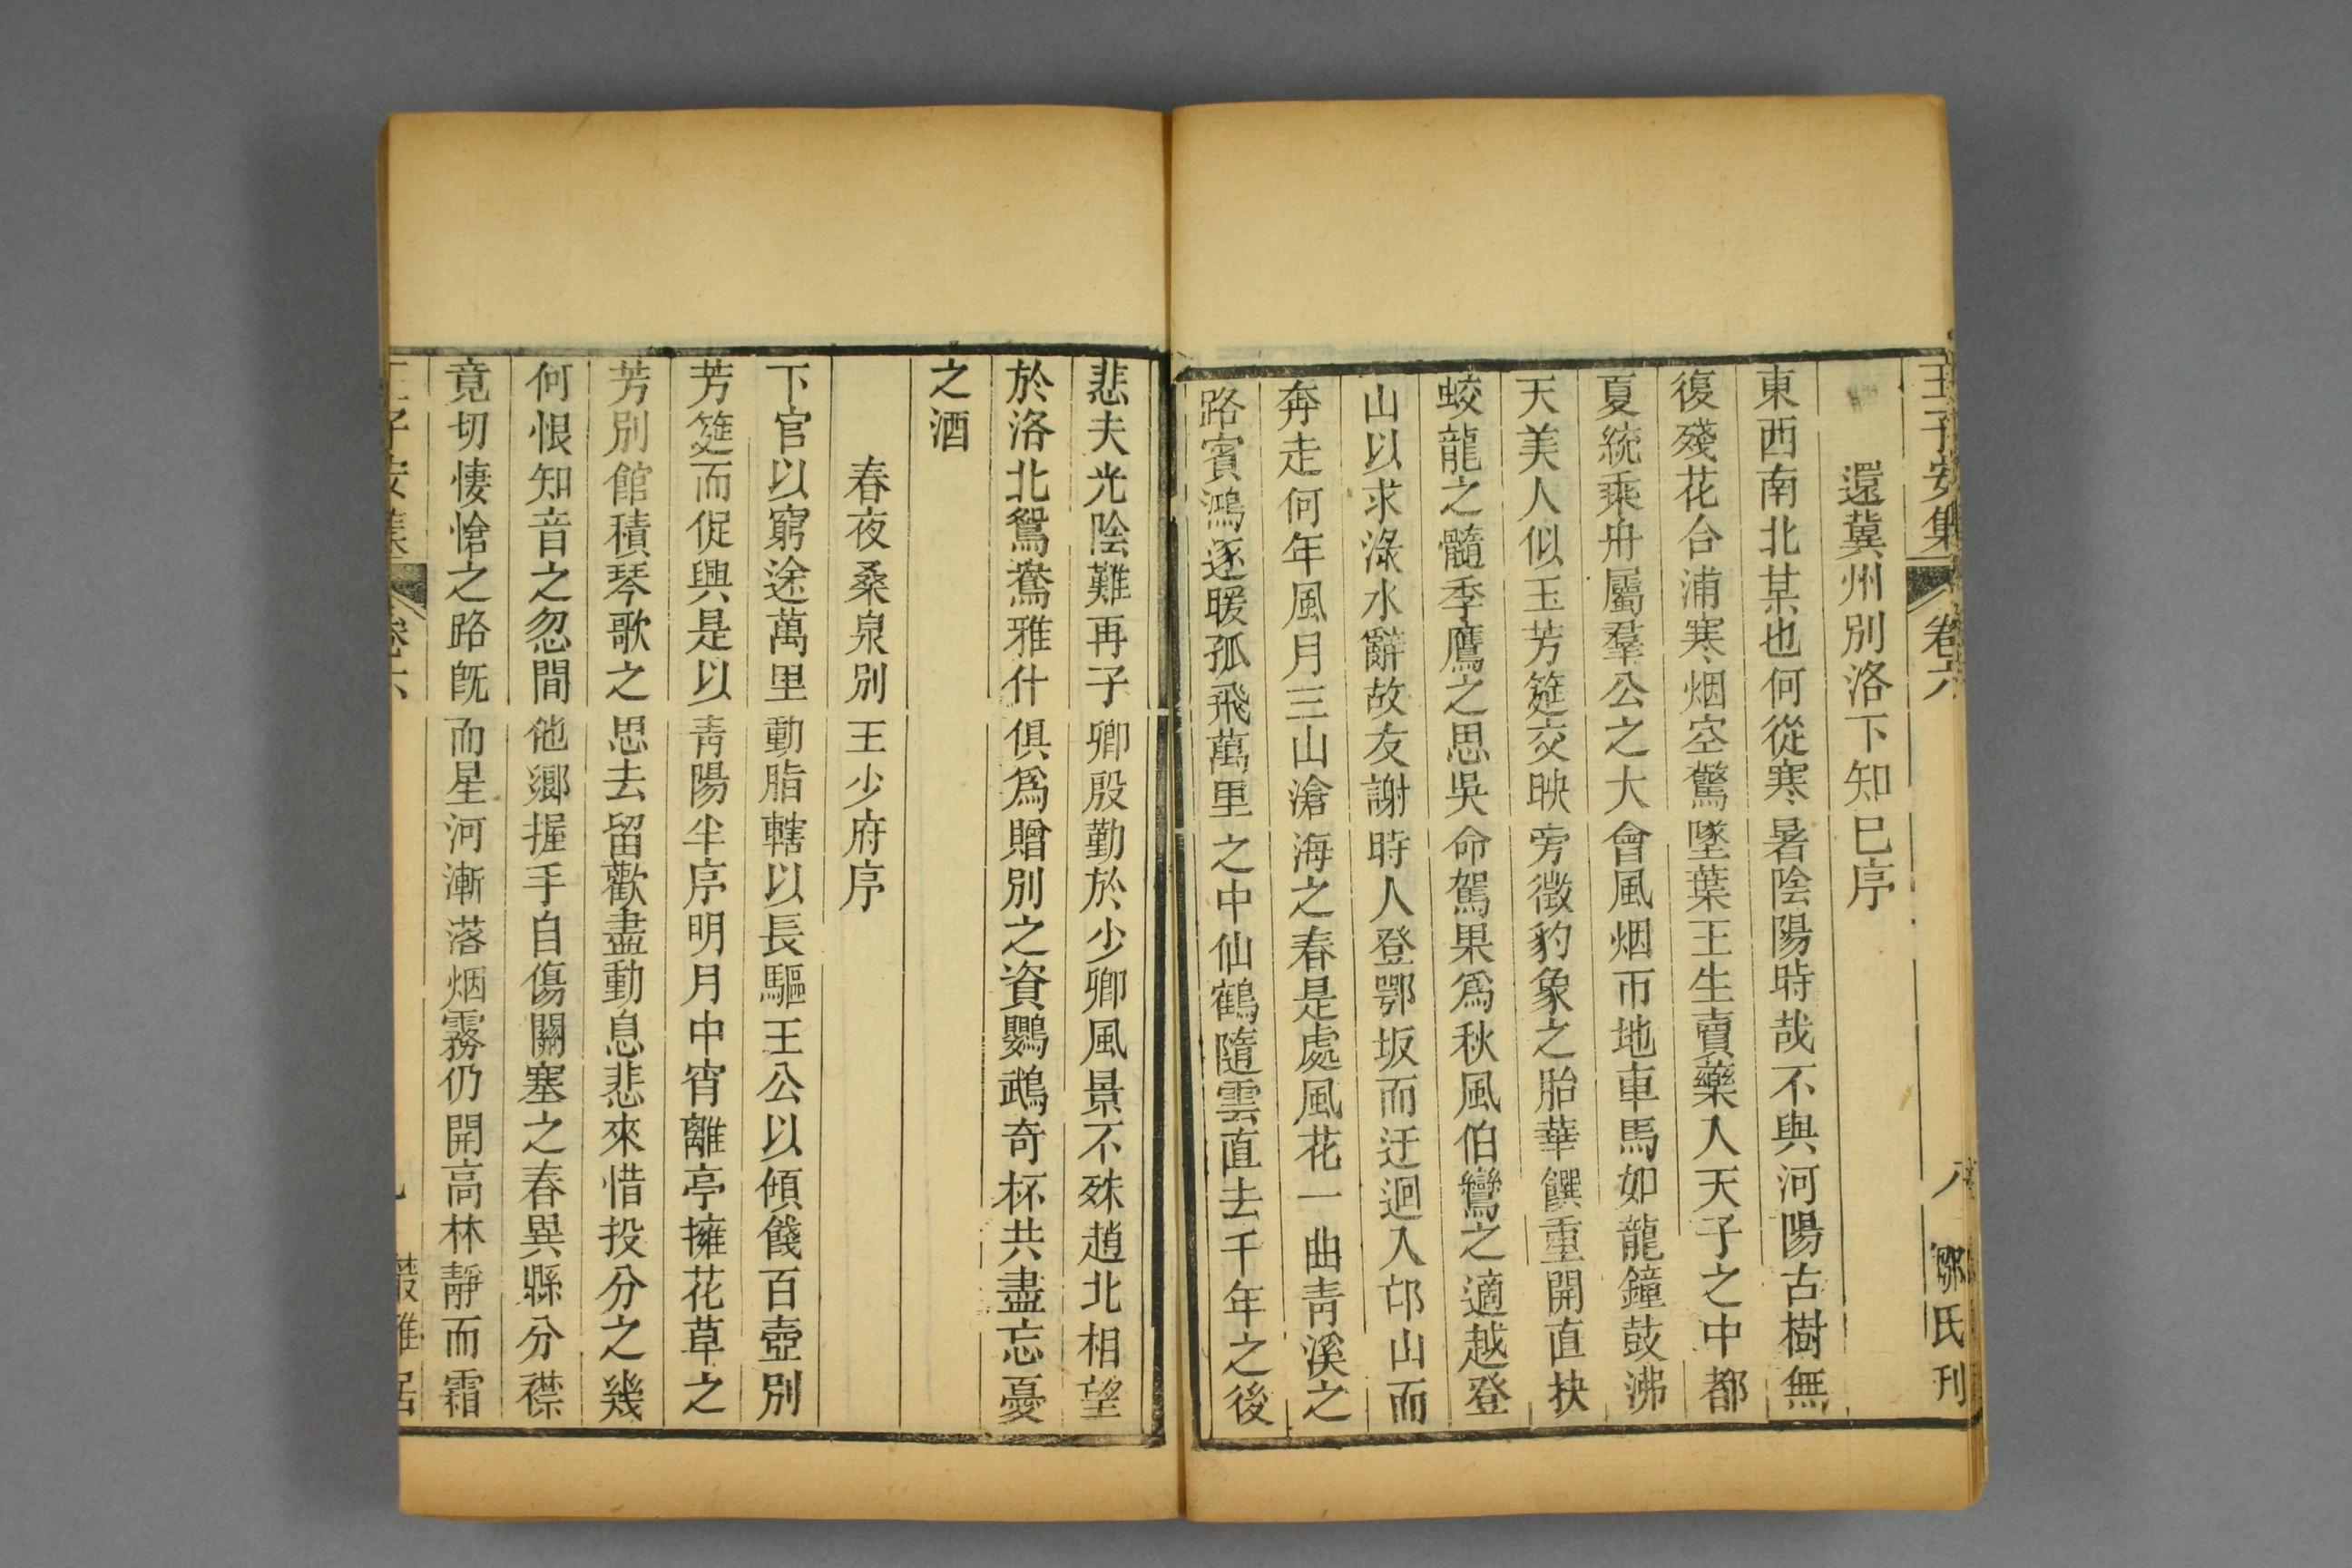 王子安集 卷六 八 鄒氏刊
還冀州別洛下知已序
東西南北某也何從寒暑陰陽時哉不與河陽古樹無
復殘花合浦寒烟空驚墜葉王生賣藥入天子之中都
夏統乘舟屬羣公之大會風烟帀地車馬如龍鐘鼓沸
天美人似玉芳筵交映旁徵豹象之胎華饌重開直抉
蛟龍之髓季鷹之思吳命駕果爲秋風伯鸞之適越登
山以求淥水辭故友謝時人登鄂坂而迂迴入邙山而
奔走何年風月三山滄海之春是處風花一曲青溪之
路賓鴻逐暖孤飛萬里之中仙鶴隨雲直去千年之後
悲夫光陰難再子卿殷勤於少卿風景不殊趙北相望
於洛北鴛鴦雅什俱爲贈別之資鸚鵡奇杯共盡忘憂
之酒
春夜桑泉別王少府序
下官以窮途萬里動脂轄以長驅王公以傾餞百壺別
芳筵而促興是以青陽半序明月中宵離亭擁花草之
芳別館積琴歌之思去留歡盡動息悲來惜投分之幾
何恨知音之忽間他鄉握手自傷關塞之春異縣分襟
竟切悽愴之路旣而星河漸落烟霧仍開高林靜而霜
子安集 卷六 叢雅居